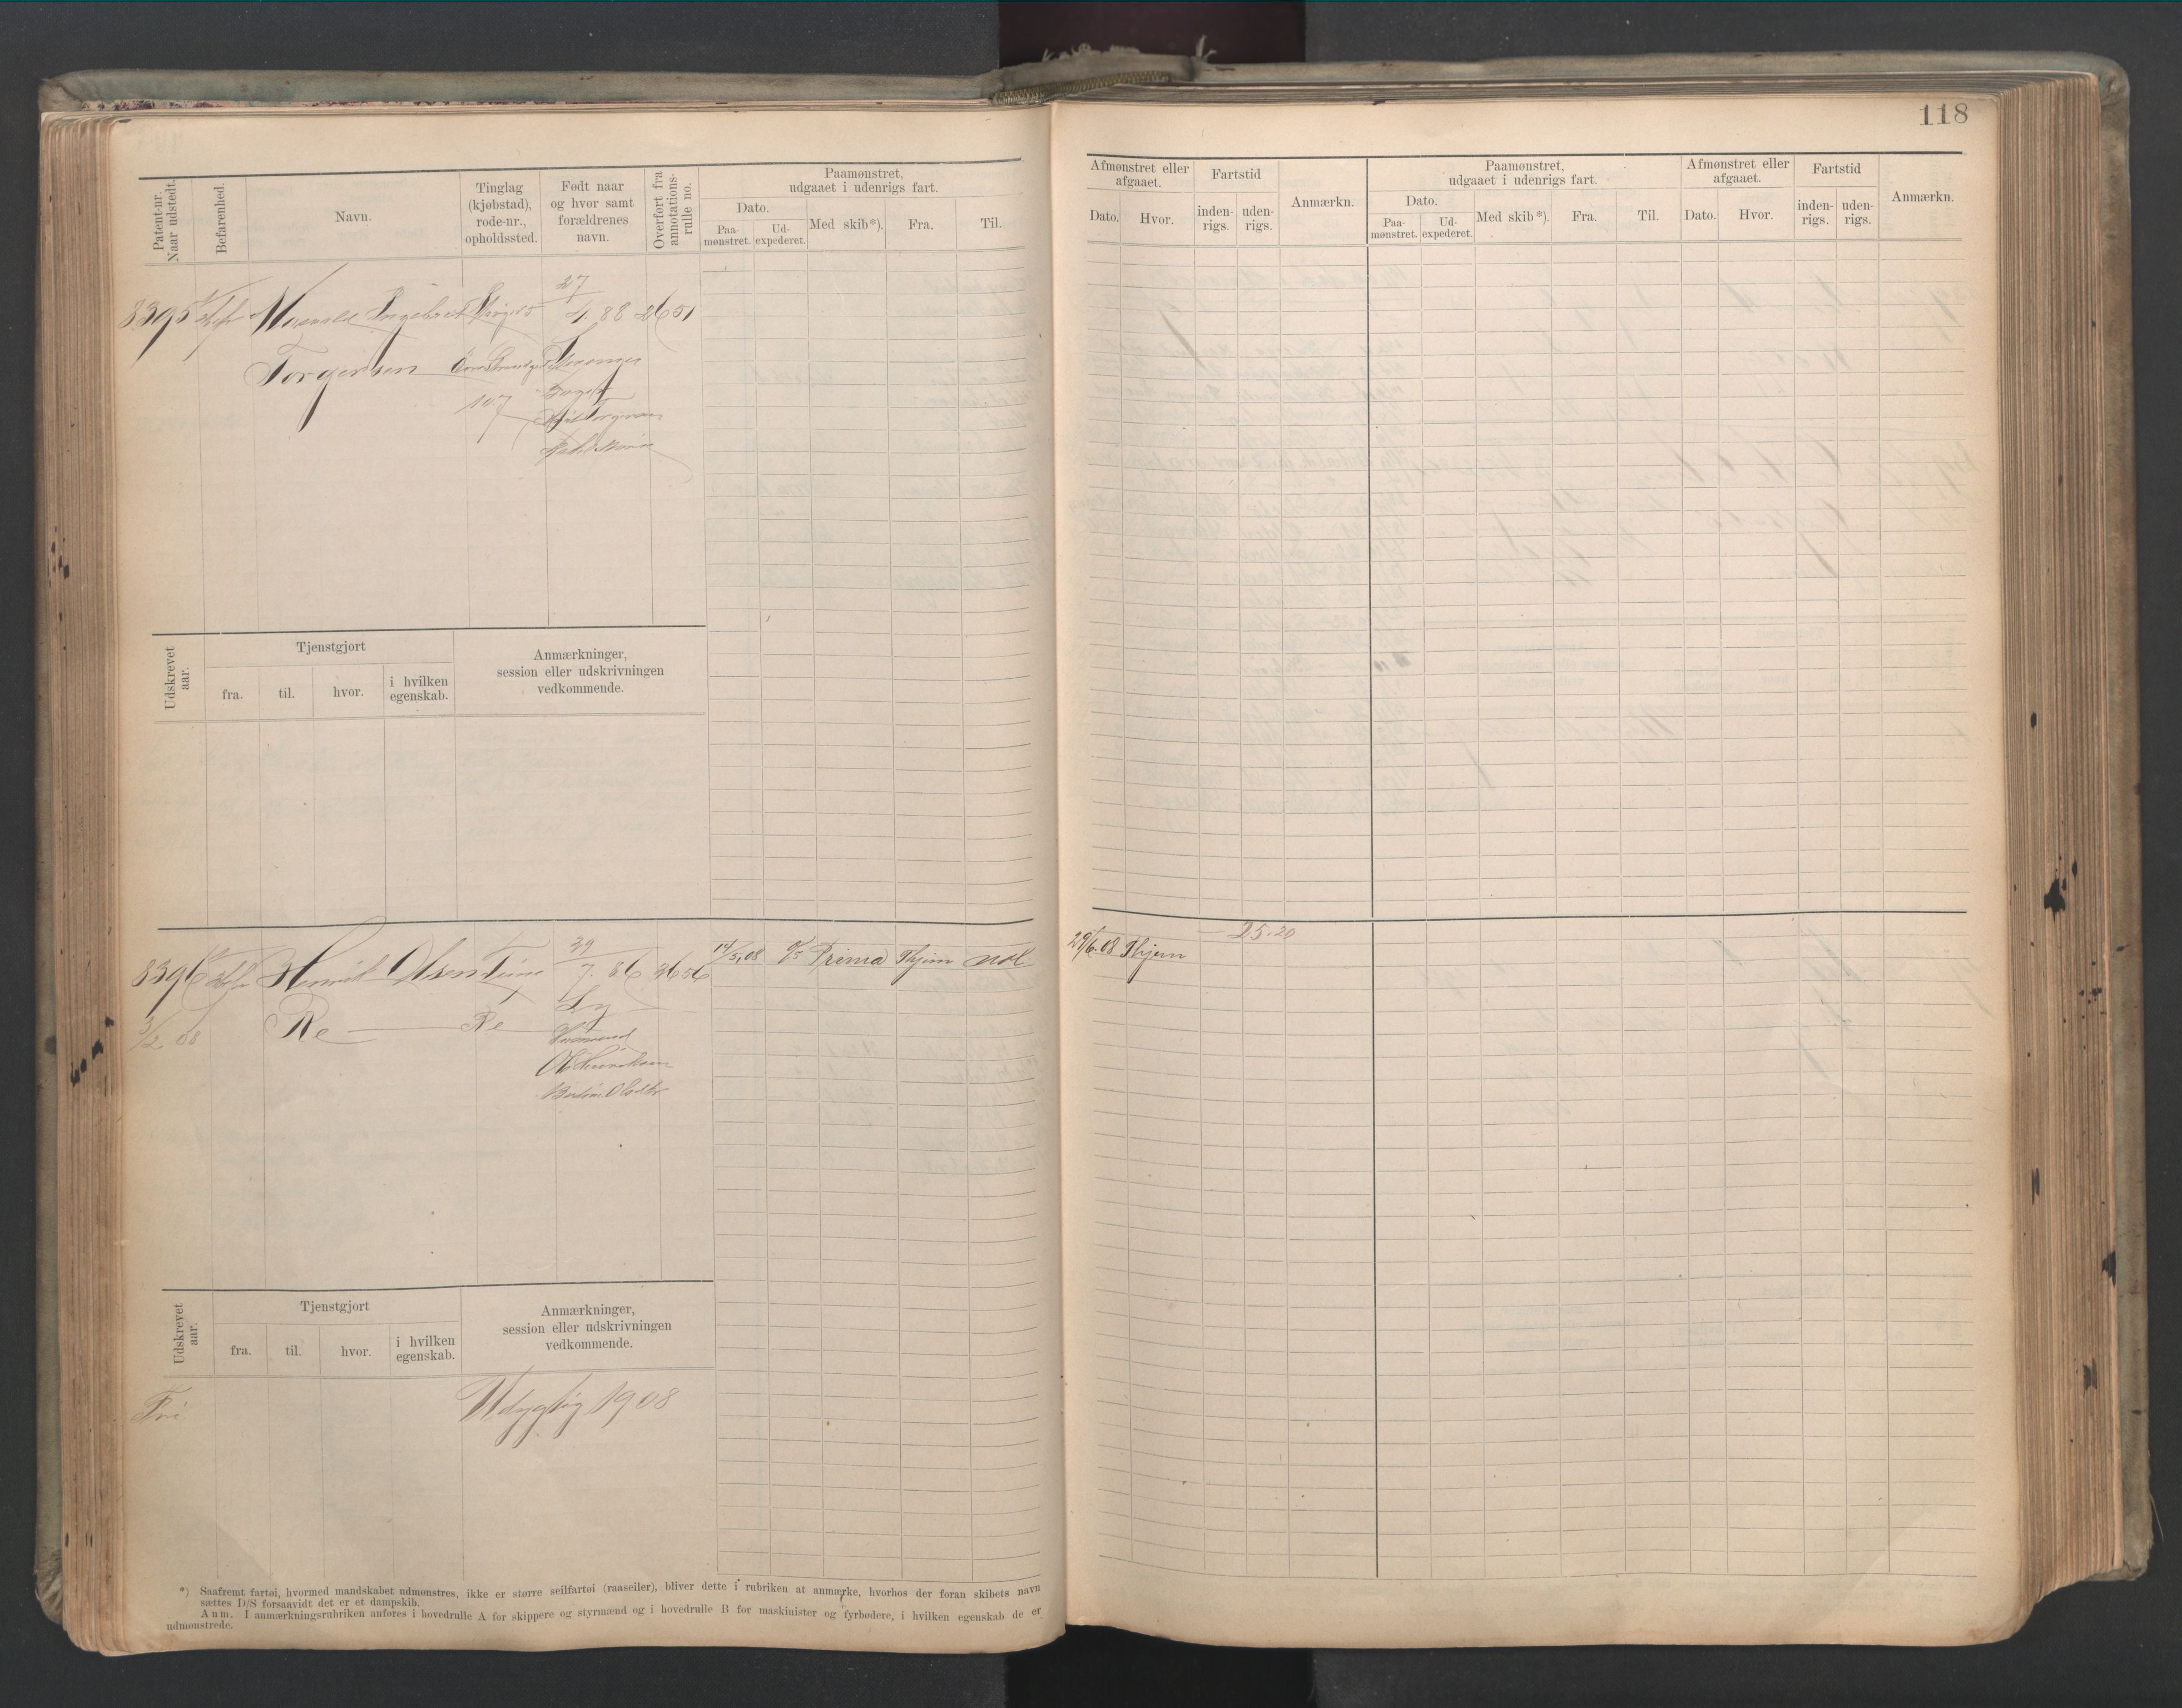 118
Patent-nr. Naar udstedt.
Befarenhed.
Navn.
Tinglag (kjøbstad), rode-nr., opholdssted.
Født naar og hvor samt forældrenes navn.
Overført fra annotations-rulle no.
Paamønstret, udgaaet i udenrigs fart.
Dato.
Paa-mønstret.
Ud-expederet.
Med skib*).
Fra.
Til.
Afmønstret eller afgaaet.
Dato.
Hvor.
Fartstid
inden-rigs.
uden-rigs.
Anmærkn.
Paamønstret, udgaaet i udenrigs fart.
Dato.
Paa-mønstret.
Ud-expederet.
Med skib*).
Fra.
Til.
Afmønstret eller afgaaet.
Dato.
Hvor.
Fartstid
inden-rigs.
uden-rigs.
Anmærkn.
8395
27
4 88 2651
Torgersen
107
Udskrevet aar.
Tjenstgjort
fra.
til.
hvor.
i hvilken egenskab.
Anmærkninger, session eller udskrivningen vedkommende.
8396 Henrik Olsen Time
29
7. 86 3656
14/5.08 Prima Thjem
Re Re
3/2 08
Ly
29/6.08 Thjem
25.20
Udskrevet aar.
Tjenstgjort
fra.
til.
hvor.
i hvilken egenskab.
Anmærkninger, session eller udskrivningen vedkommende.
Fri
Udygtig 1908
*) Saafremt fartøi, hvormed mandskabet udmønstres, ikke er større seilfartøi (raaseiler), bliver dette i rubriken at anmærke, hvorhos der foran skibets navn
sættes D/S forsaavidt det er et dampskib.
Anm. I anmærkningsrubriken anføres i hovedrulle A for skippere og styrmænd og i hovedrulle B for maskinister og fyrbødere, i hvilken egenskab de er
udmønstrede.